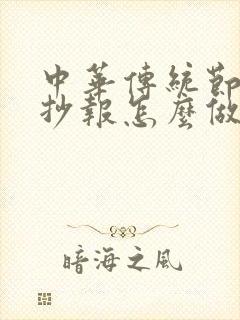 中華傳統節
抄報怎麼做
暗海之風